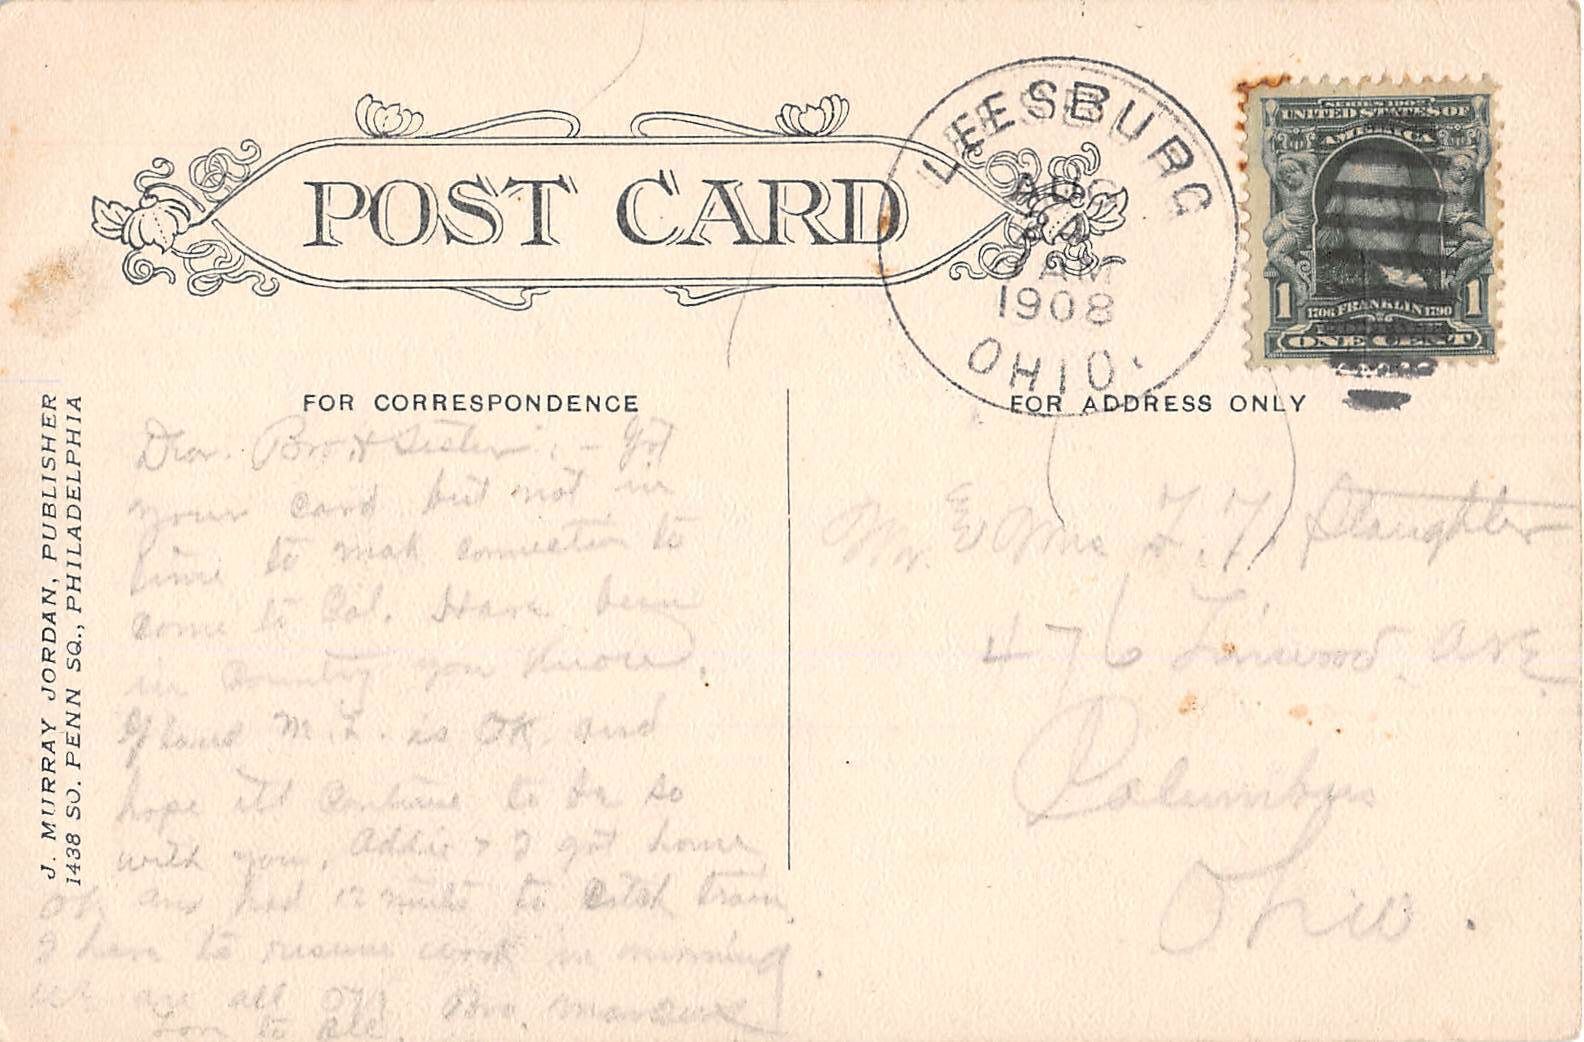 POST CARD
LEESBURG
AUG
24
AM
1908
OHIO.
SERIES 1902
UNITED STATES OF
AMERICA
1706 FRANKLIN 1790
1 1
ONE CENT
FOR CORRESPONDENCE
FOR ADDRESS ONLY
J. MURRAY JORDAN, PUBLISHER
1438 SO. PENN SQ., PHILADELPHIA
Dear Bro & Sister: - Got
your card but not in
time to mak connection to
come to Col. Have been
in Country you know.
M. L. is OK and
hope itl continue to be so
with you. Addie & I got home
Ok and had 12 mints to catch train
I have to resume work in morning
We are all OK Bro.
Love to all.
Mr. & Mrs F. F. Slaughter
476 Linwood Ave
Columbus
Ohio.